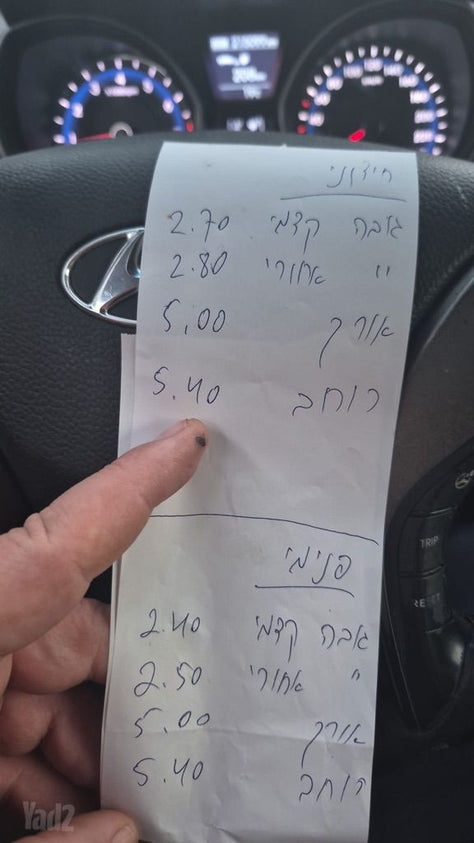 חיצוני
גובה קדמי 2.70
״ אחורי 2.80
אורך 5.00
רוחב 5.40
פנימי
גובה קדמי 2.40
״ אחורי 2.50
אורך 5.00
רוחב 5.40
TRIP
RESET
Yad2